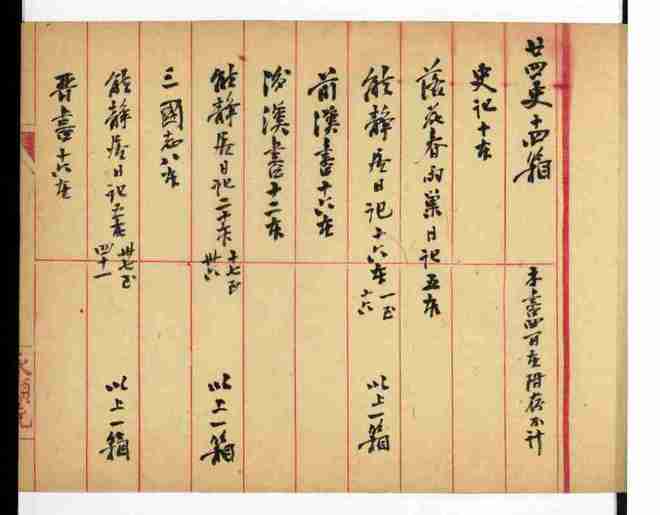 廿四史十四箱
附存不計
史記十本
落花春雨巢日記五本
能靜居日記十六本 一至
十六 以上一箱
前漢書十六本
後漢書十二本
能靜居日記二十本 十七至
卅六 以上一箱
三國志八本
能靜居日記五本 卅七至
四十一 以上一箱
晉書十六本